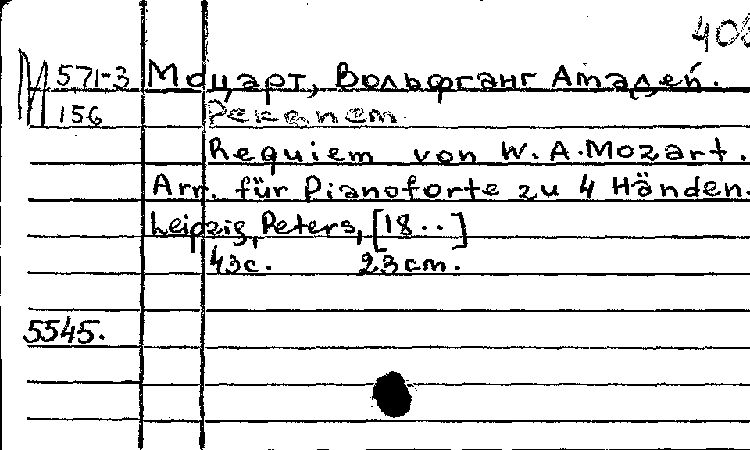 408
М 571-3 Моцарт, Вольфганг Амадей.
156 Реквием
Requiem von W. A. Mozart.
Arr. für Pianoforte zu 4 Händen.
Leipzig, Peters, [18..]
43с. 23 cm.
5545.